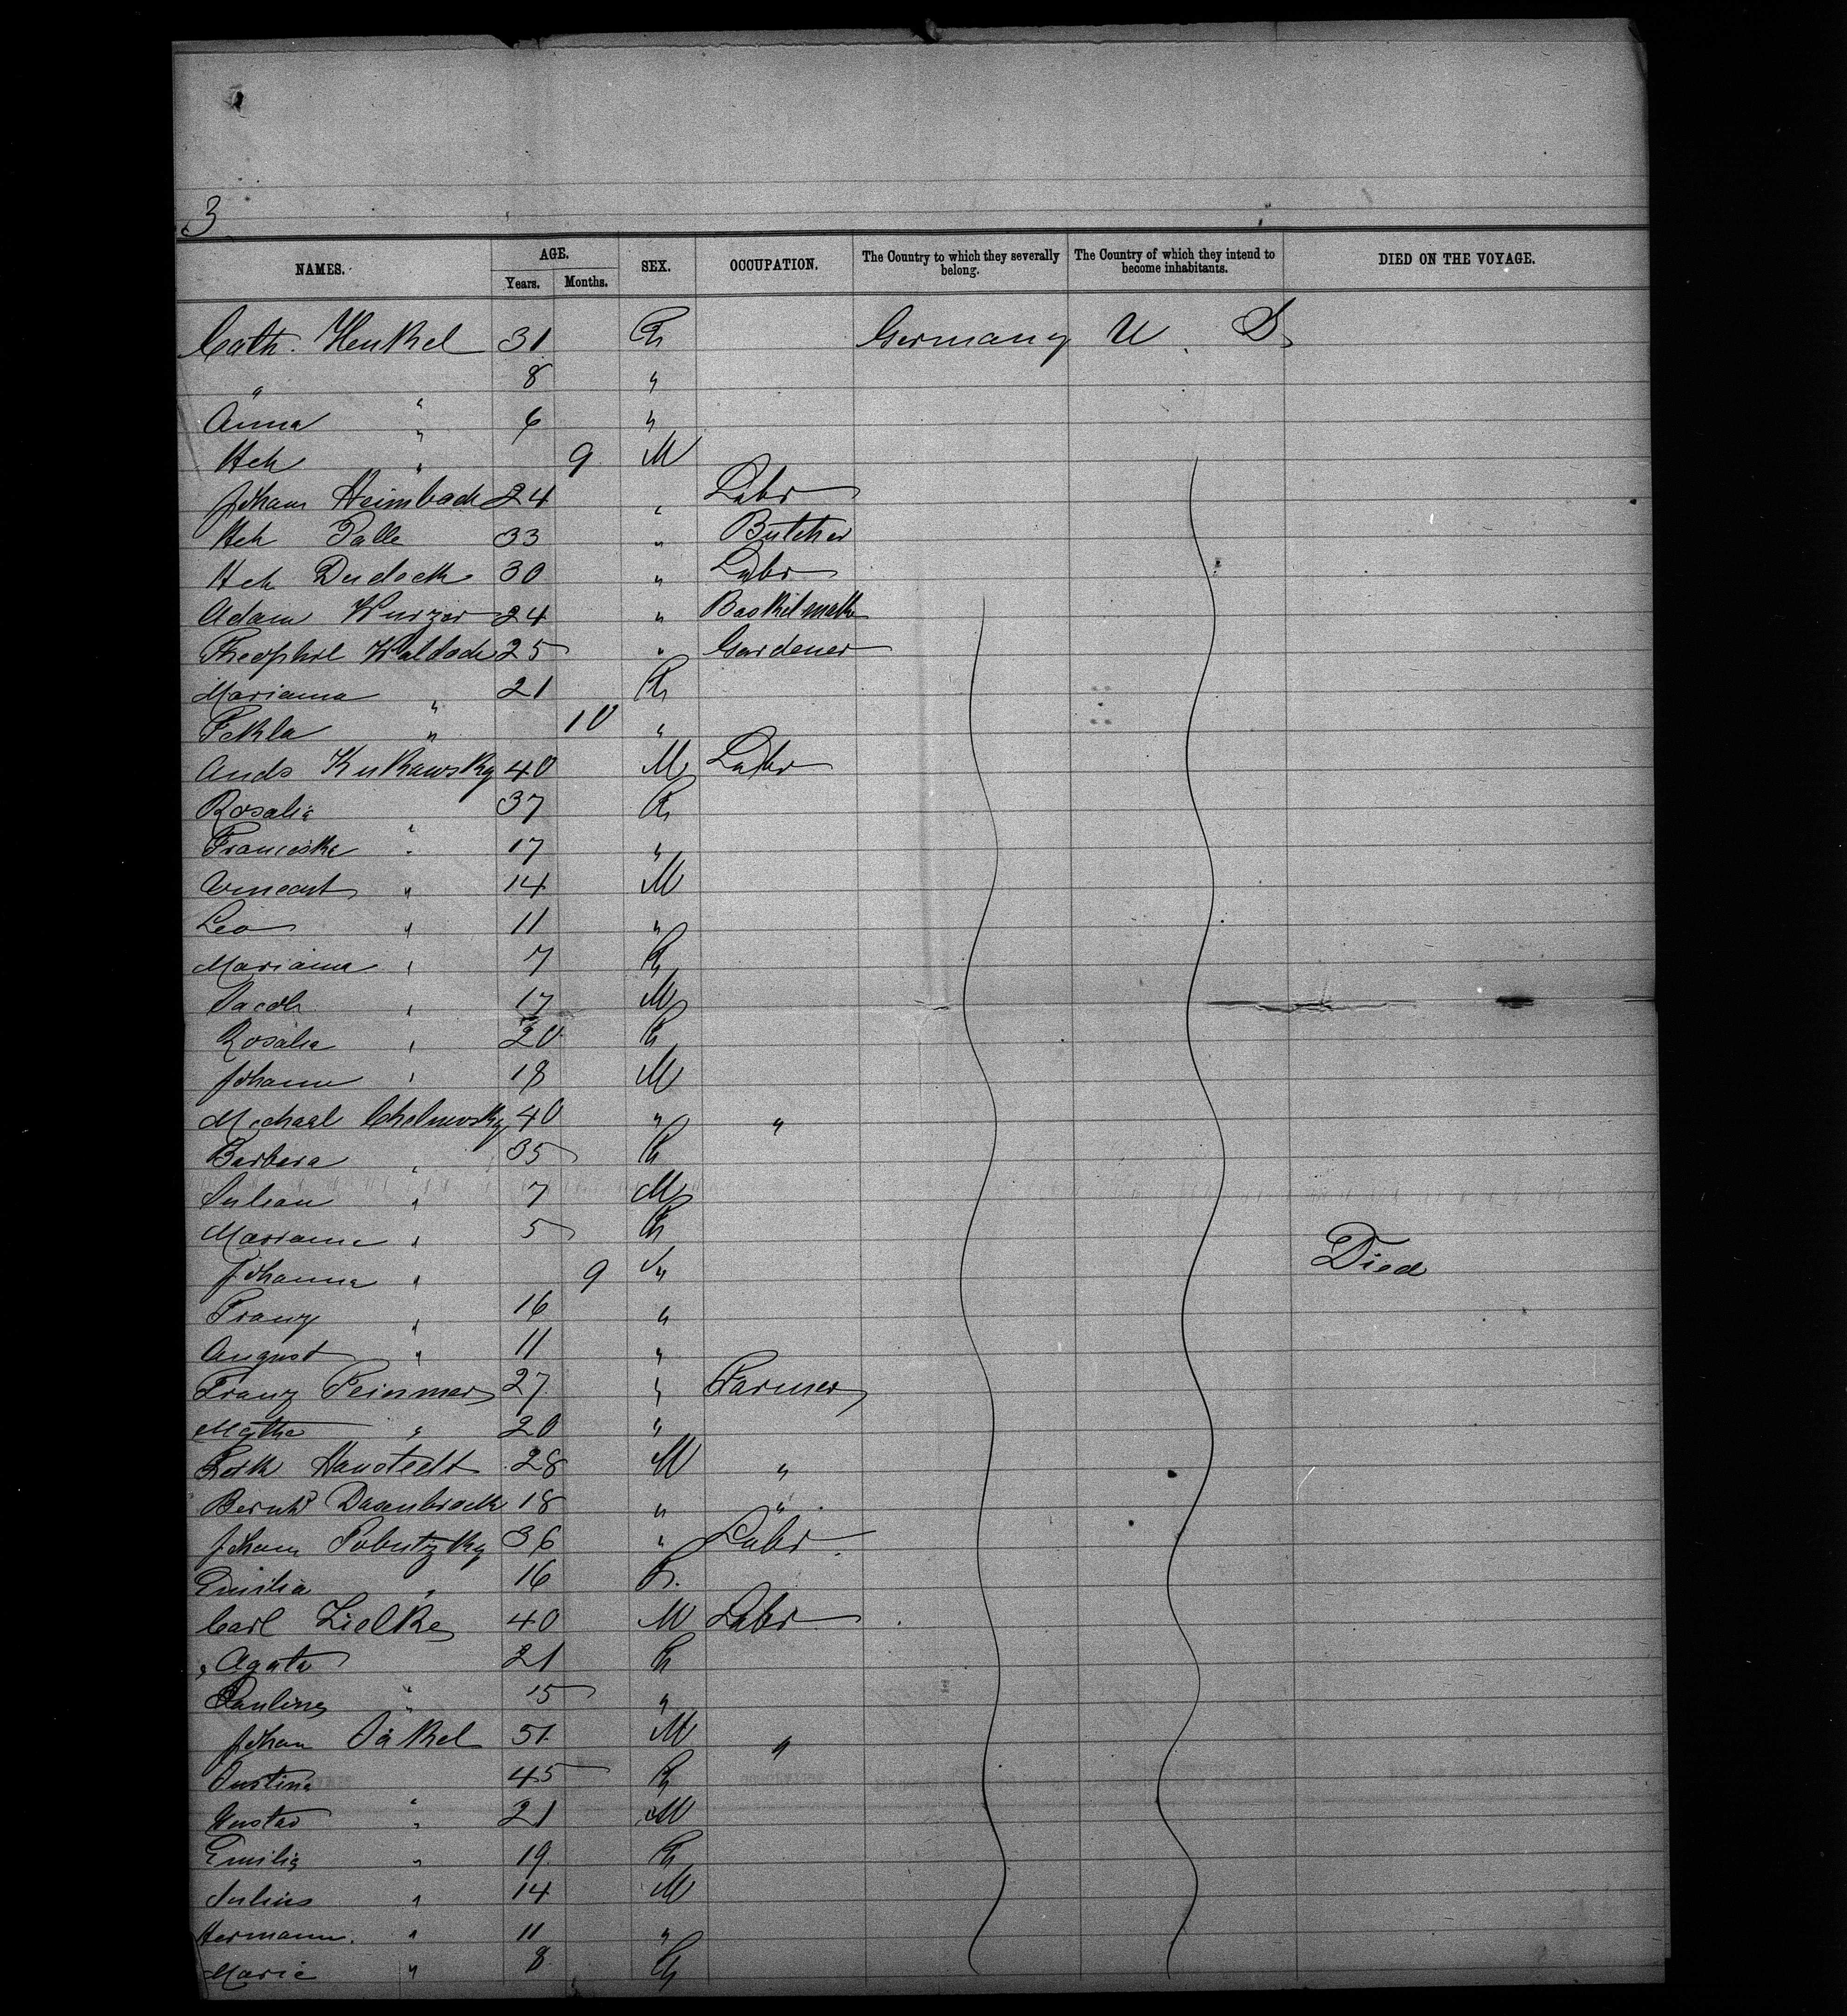 3
NAMES. AGE. Years. Months. SEX. OCCUPATION. The Country to which they severally belong. The Country of which they intend to become inhabitants. DIED ON THE VOYAGE.
Cath. Henkel 31 Germany U. S
" " 8 "
Anna " 6 "
Hch " 9 M
Johann Heimbach 24 " Labr
Hch Palle 33 " Butcher
Hch Dudeck 30 " Labr
Adam Wurzer 24 " Basketmakr
Theophil Waldock 25 " Gardener
Marianna " 21
Tekla " 10 "
Andr Kukawsky 40 M Labr
Rosalia " 37
Franciska " 17 "
Vincent " 14 M
Leo " 11 "
Marianna " 7
Jacob " 17 M
Rosalia " 20
Johann " 18 M
Michael Chelmosky 40 " "
Barbara " 35
Julian " 7 M
Marianne " 5
Johanna " 9 " Died
Franz " 16 "
August " 11 "
Franz 27 " Farmer
" 20 "
Hanstedt 28 M "
Bernhd Dasenbrock 18 " "
Johann Sobutzky 36 " Labr
Emilia " 16
Carl Zielke 40 M Labr
Agata " 21
Pauline " 15 "
Johan Jäkel 51 M "
Justina " 45
Gustav " 21 M
Emilia " 19
Julius " 14 M
Hermann " 11 "
Marie " 8